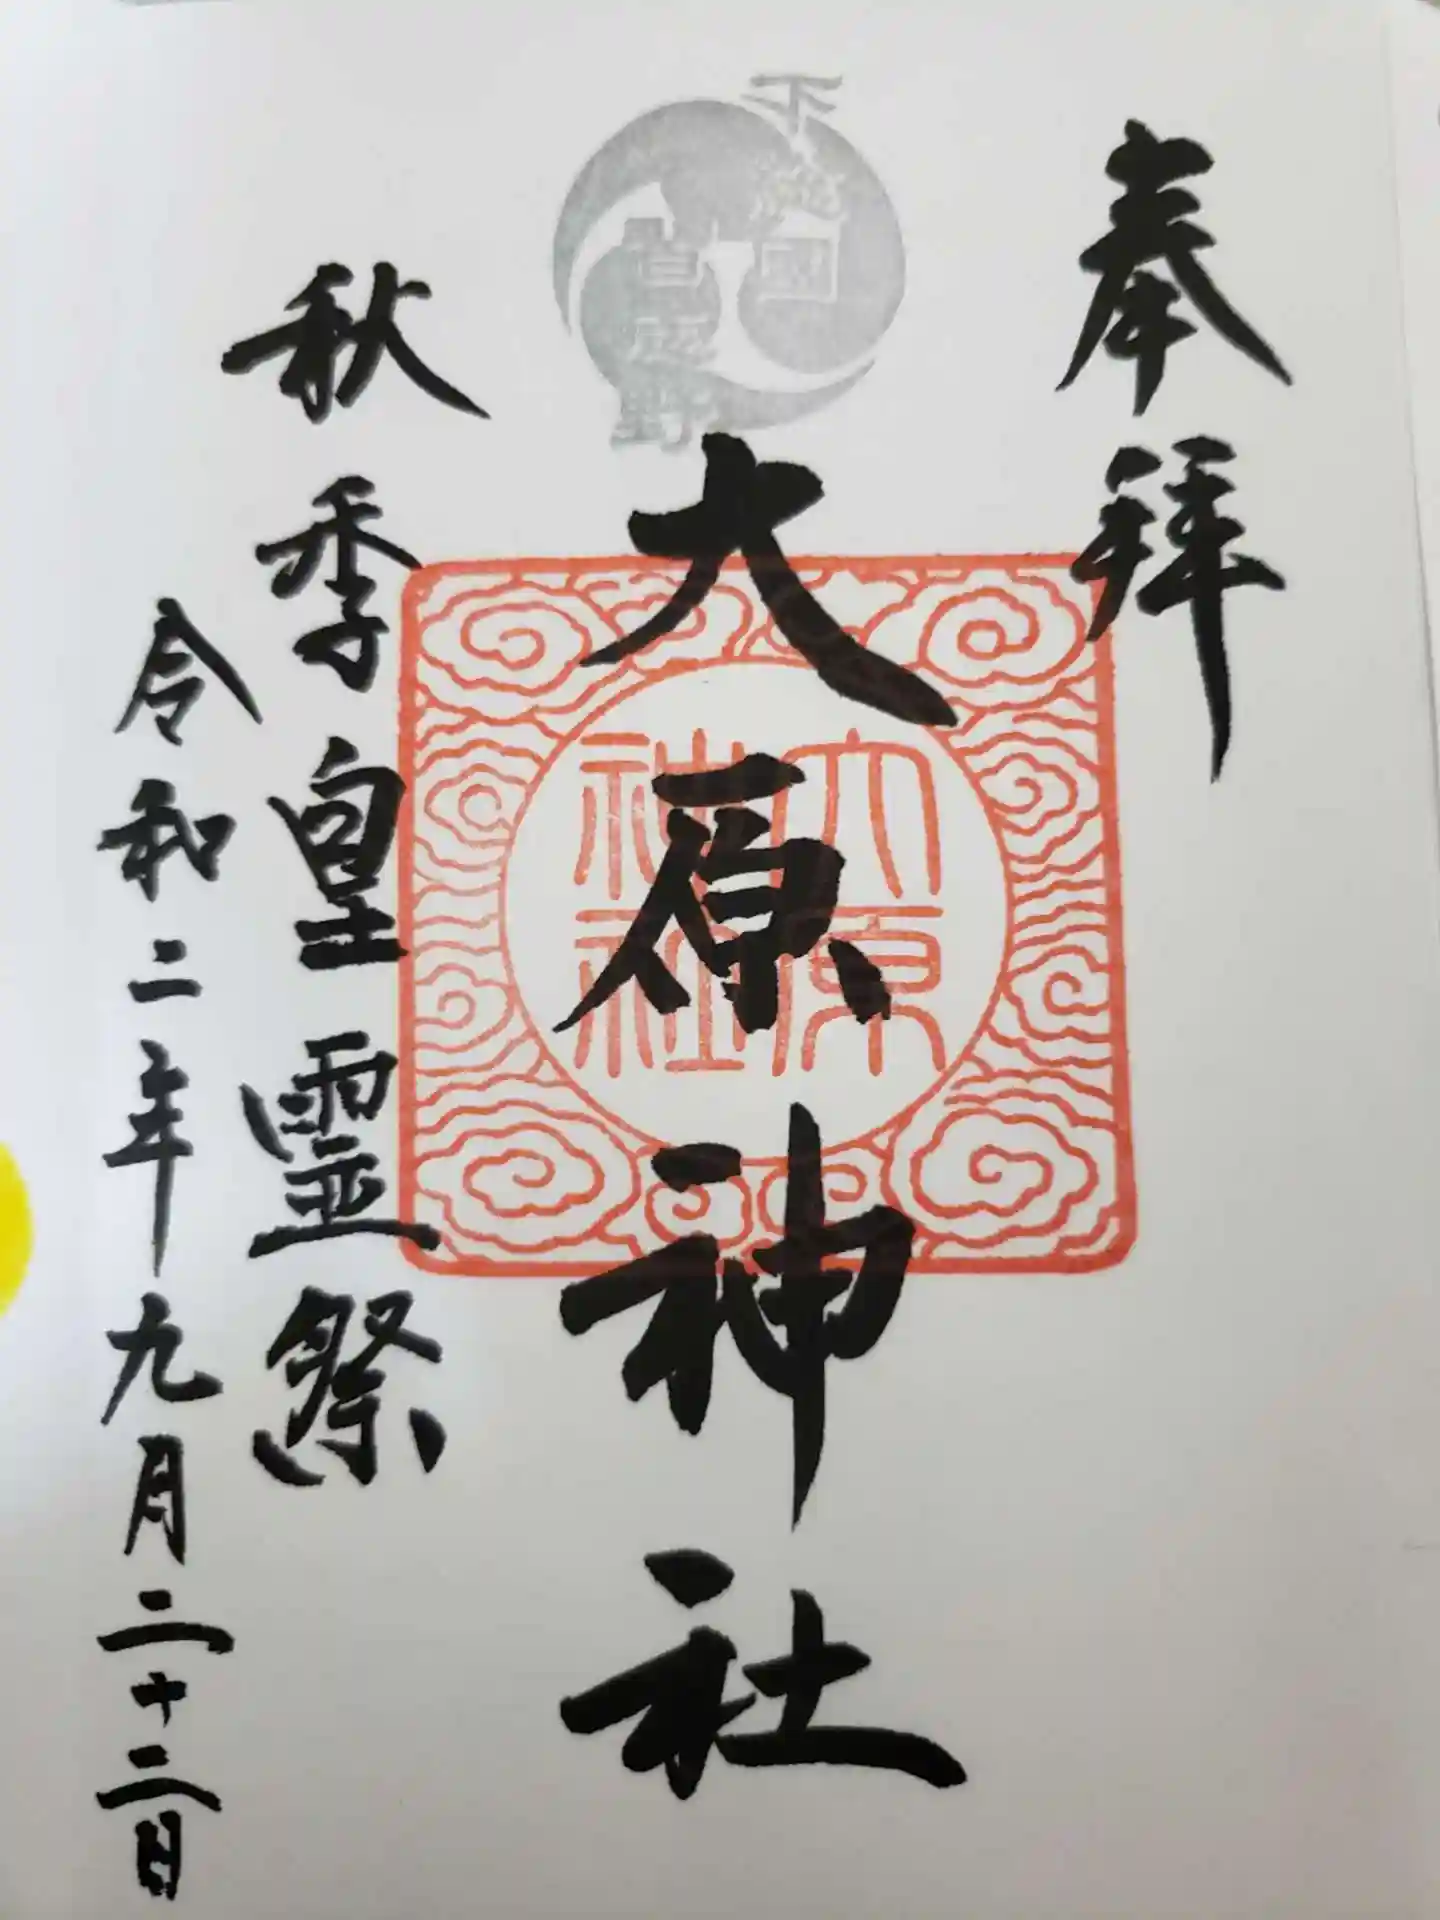 奉拝
下総國
大原神社
大原
神社
秋季皇霊祭
令和二年九月二十二日